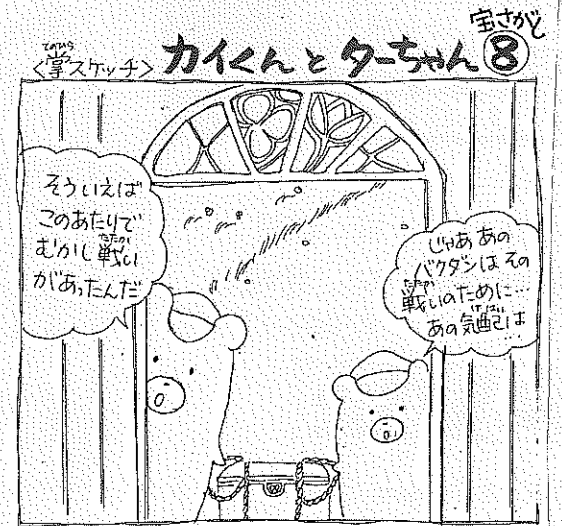 <掌スケッチ> カイくんとターちゃん⑧
宝さがし
そういえば
このあたりで
むかし戦い
があったんだ
じゃああの
バクダンはその
戦いのために…
あの気配は
…